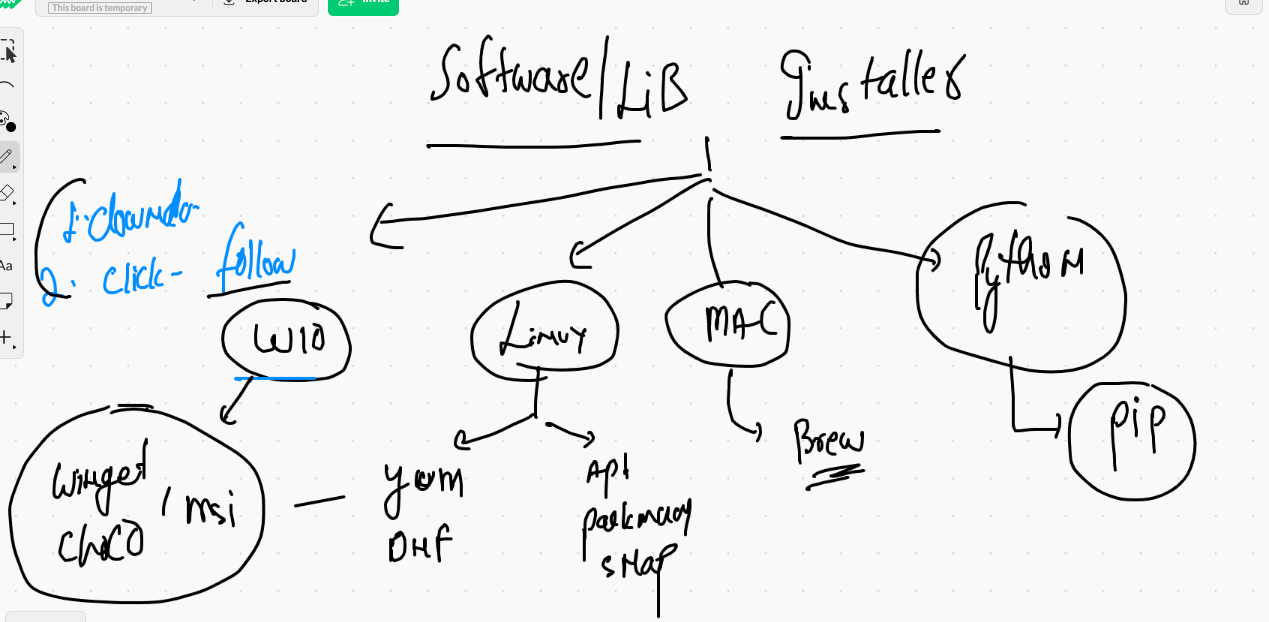 This board is temporary
Export board
Invite
Software/LiB Installer
1. downdo-
2. click- follow
W10
Linux
MAC
Python
Aa
winget / msi
choco
yum
DNF
Apt
snap
Brew
pip